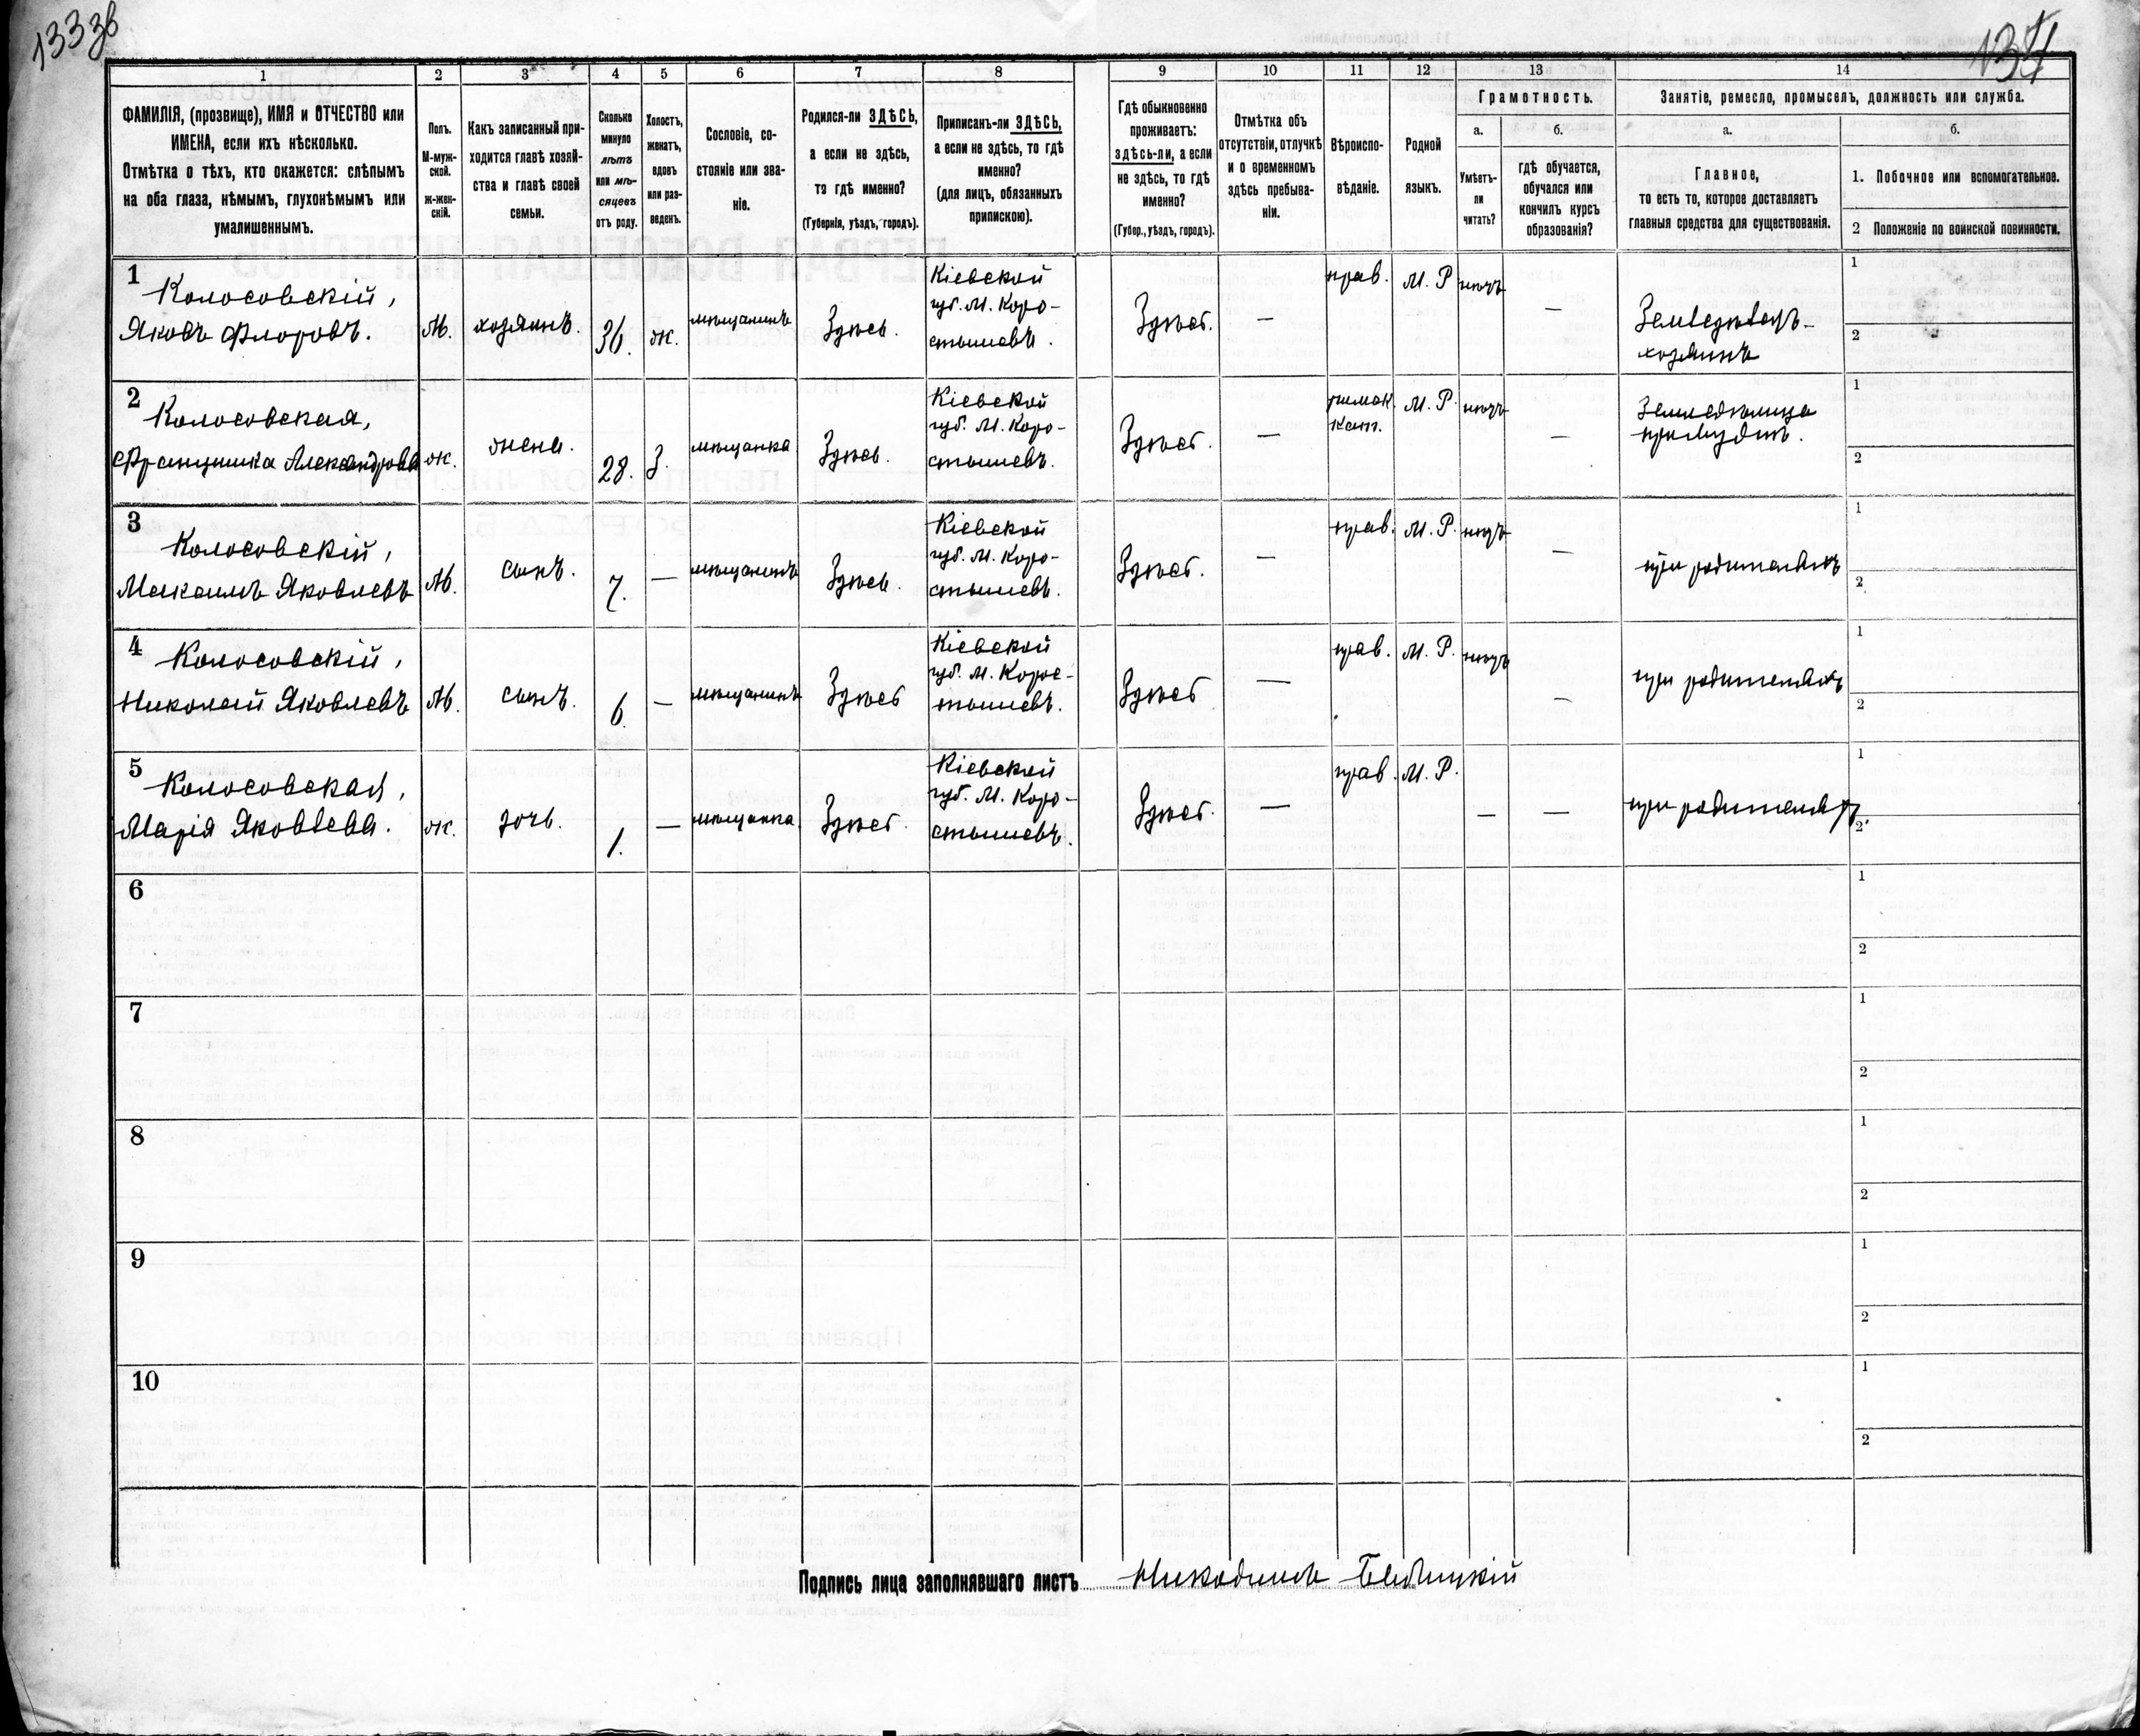 133 зв
134
1 2 3 4 5 6 7 8 9 10 11 12 13 14
ФАМИЛІЯ, (прозвище), ИМЯ и ОТЧЕСТВО или
ИМЕНА, если ихъ нѣсколько.
Отмѣтка о тѣхъ, кто окажется: слѣпымъ
на оба глаза, нѣмымъ, глухонѣмымъ или
умалишеннымъ.
Полъ.
М-муж-
ской.
ж-жен-
скій.
Какъ записанный при-
ходится главѣ хозяй-
ства и главѣ своей
семьи.
Сколько
минуло
лѣтъ
или мѣ-
сяцевъ
отъ роду.
Холостъ,
женатъ,
вдовъ
или раз-
веденъ.
Сословіе, со-
стояніе или зва-
ніе.
Родился-ли ЗДѢСЬ,
а если не здѣсь,
то гдѣ именно?
(Губернія, уѣздъ, городъ).
Приписанъ-ли ЗДѢСЬ,
а если не здѣсь, то гдѣ
именно?
(для лицъ, обязанныхъ
припискою).
Гдѣ обыкновенно
проживаетъ:
здѣсь-ли, а если
не здѣсь, то гдѣ
именно?
(Губер., уѣздъ, городъ).
Отмѣтка объ
отсутствіи, отлучкѣ
и о временномъ
здѣсь пребыва-
ніи.
Вѣроиспо-
вѣданіе.
Родной
языкъ.
Грамотность.
а.
Умѣетъ-
ли
читать?
б.
гдѣ обучается,
обучался или
кончилъ курсъ
образованія?
Занятіе, ремесло, промыселъ, должность или служба.
а.
Главное,
то есть то, которое доставляетъ
главныя средства для существованія.
б.
1. Побочное или вспомогательное.
2 Положеніе по воинской повинности.
1
Колосовскій,
Яковъ Флоровъ.
М.
хозяинъ.
36.
ж.
мѣщанинъ
Здѣсь.
Кіевской
губ. М. Коро-
стышевъ.
Здѣсь.
—
прав.
М. Р
нѣтъ
—
хозяинъ
1
2
2
Колосовская,
Францишка Александрова
ж.
жена.
28.
З.
мѣщанка
Здѣсь.
Кіевской
губ. М. Коро-
стышевъ.
Здѣсь.
—
римок.
кат.
М. Р.
нѣтъ
—
1
2
3
Колосовскій,
Максимъ Яковлевъ
М.
сынъ.
7.
—
мѣщанинъ
Здѣсь.
Кіевской
губ. М. Коро-
стышевъ.
Здѣсь.
—
прав.
М. Р.
нѣтъ
—
при родителяхъ
1
2
4
Колосовскій,
Николай Яковлевъ
М.
сынъ.
6.
—
мѣщанинъ
Здѣсь
Кіевской
губ. М. Корос-
тышевъ.
Здѣсь
—
прав.
М. Р.
нѣтъ
—
при родителяхъ
1
2
5
Колосовская,
Марія Яковлева.
ж.
дочь.
1.
—
мѣщанка
Здѣсь.
Кіевской
губ. М. Коро-
стышевъ.
Здѣсь.
—
прав.
М. Р.
—
—
при родителях.
1
2
6
1
2
7
1
2
8
1
2
9
1
2
10
1
2
Подпись лица заполнявшаго листъ Никодимъ